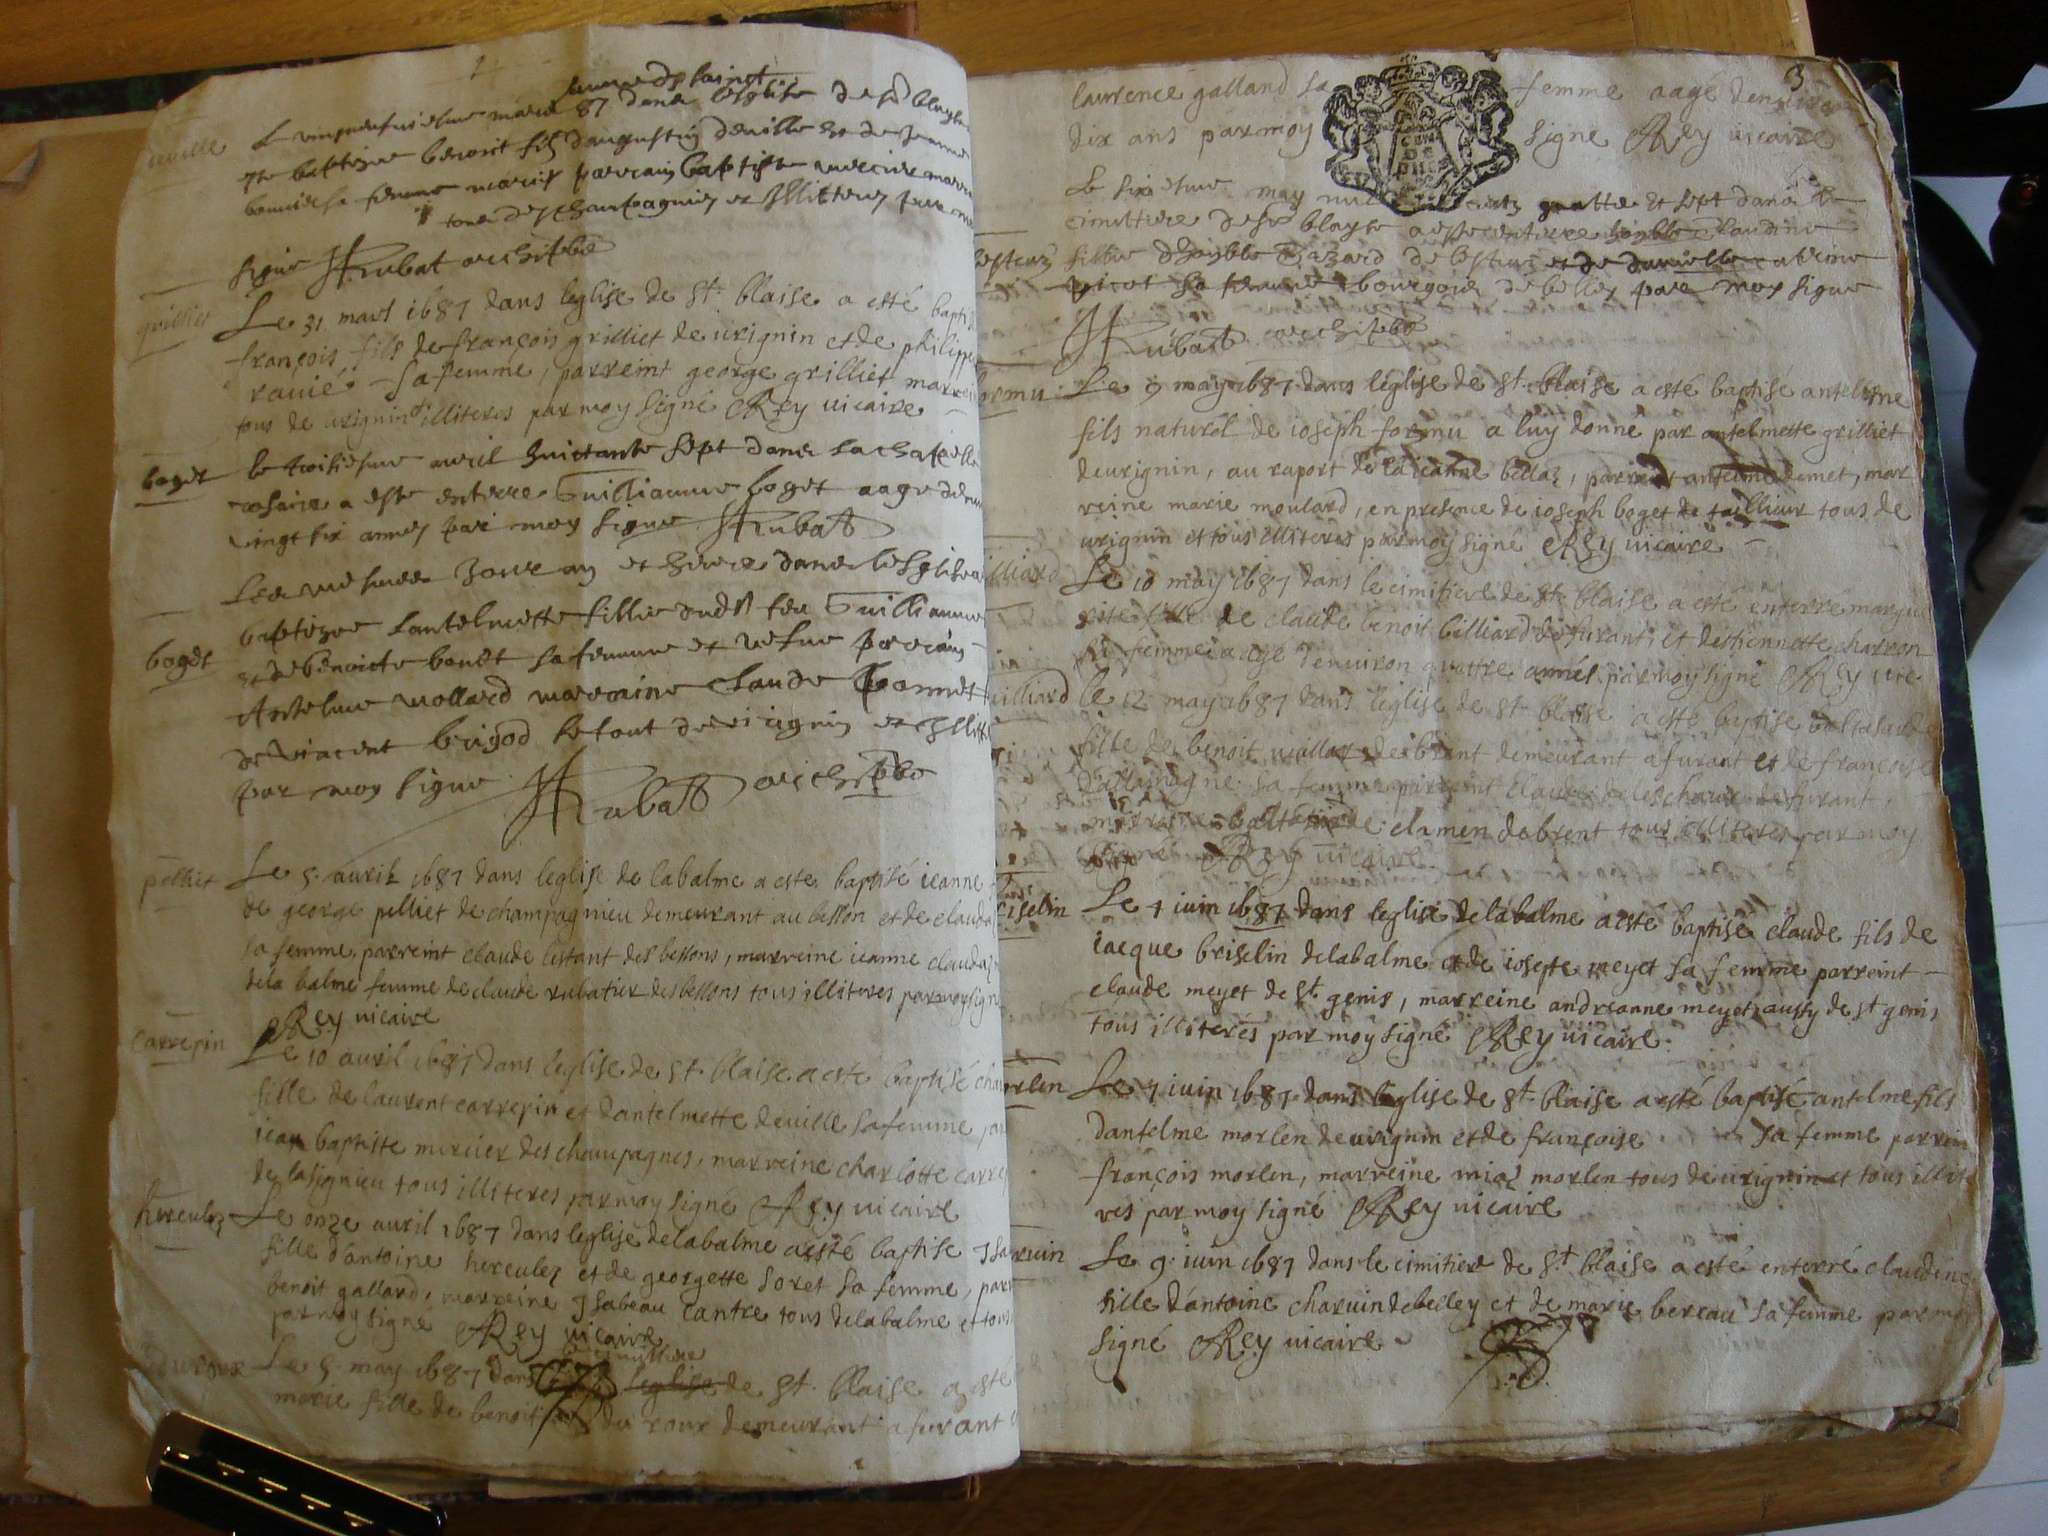 deville
Le vingneufviesme mars 87 dans l'esglise de st blayse
baptesme benoit fils daugustin deville et de Jeanne
sa femme parrain baptiste mercier
des champagnes et Illiteres par moy
signe Rubat archipbre
grilliet
Le 31 mars 1687 dans leglise de St. blaise a esté bapti
françois fils de françois grilliet de virignin et de philippe
ravié sa femme, parreint george grilliet marrei
tous de virignin illiteres par moy signé Rey vicaire
boget
le troisiesme avril huictante sept dans la chapelle
rosaire a este enterre Guilliaume boget aage denv
vingt six annes par moy signe Rubat
boget
Les mesmes Jour an et heure dans lesglise
baptesme Lantelmette fillie dudit feu Guilliaume
et de benoicte bonet sa femme et vefve parrain
Antelme mollard marraine Claude
de vincent brigod le tout de virignin et Illitt
par moy signe Rubat archipbre
pelliet
Le 5. avril 1687 dans leglise de labalme a este baptisé ieanne
de george pelliet de champagnieu demeurant au besson et de clauda
sa femme, parreint claude lestant des bessons, marreine ieanne clauda
dela balme femme de claude rubatier des bessons tous illiteres par moy sign
Rey vicaire
carrepin
Le 10 avril 1687 dans leglise de St. blaise a esté baptisé cha
fille de laurent carrepin et dantelmette deville sa femme par
iean baptiste mercier des champagnes, marreine charlotte carre
de lasignieu tous illiteres par moy signé Rey vicaire
herculez
Le onze avril 1687 dans leglise delabalme a esté baptise Isa
fille d'antoine herculez et de georgette soret sa femme, parr
benoit galland, marreine Isabeau cantre tous delabalme et tous
par moy signé Rey vicaire
cimittiere
du roux
Le 5. may 1687 dans leglise de St. blaise a este
marie fille de benoit du roux demeurant a furant
3
laurence galland sa femme aagé denviron
dix ans par moy signé Rey vicaire
Le sixiesme may mil huictante et sept dans le
cimittiere de st blayse a este enterree honble Claudine
fillie dhonble Hazard de lestraz et de danielle catrine
picot sa femme bourgois de belley par moy signe
Rubat archipbre
formu
Le 9 may 1687 dans léglise de St. blaise a esté baptisé antelme
fils naturel de ioseph formu a luy donné par antelmette grilliet
devrignin, au raport de la ieanne bellaz, parreint antelme demet, mar
reine marie moulard, en presence de ioseph boget de taillieur tous de
urignin et tous illiteres par moy signé Rey vicaire
billiard
Le 10 may 1687 dans le cimitiere de St. blaise a esté enterré margue
rite fille de claude benoit billiard de furant, et destiennette charron
sa femme aagé denviron quattre annés par moy signé Rey vire
villiard
le 12 may 1687 dans l'eglise de St blaise a esté baptise baltasarde
fille de benoit villiard de brent demeurant a furant et de francoise
dallemagne sa femme parreint claude deleschaux de furant,
marreine baltasarde clamen dabrent tous illiteres par moy
signé Rey vicaire
briselin
Le 1 iuin 1687 dans leglise de labalme a esté baptisé claude fils de
iacque briselin delabalme et de iosepte meyet sa femme parreint
claude meyet de St. genis, marreine andreanne meyet aussy de st genis
tous illiterés par moy signé Rey vicaire.
morlen
Le 7 iuin 1687 dans leglise de St. blaise a esté baptisé antelme fils
dantelme morlen de urignin et de françoise sa femme parrein
françois morlen, marreine miaz morlen tous de urignin et tous illite
res par moy signé Rey vicaire
charvin
Le 9. iuin 1687 dans le cimitiere de St. blaise a esté enterré claudine
fille d'antoine charvin debelley et de marie bereau sa femme par moy
signé Rey vicaire